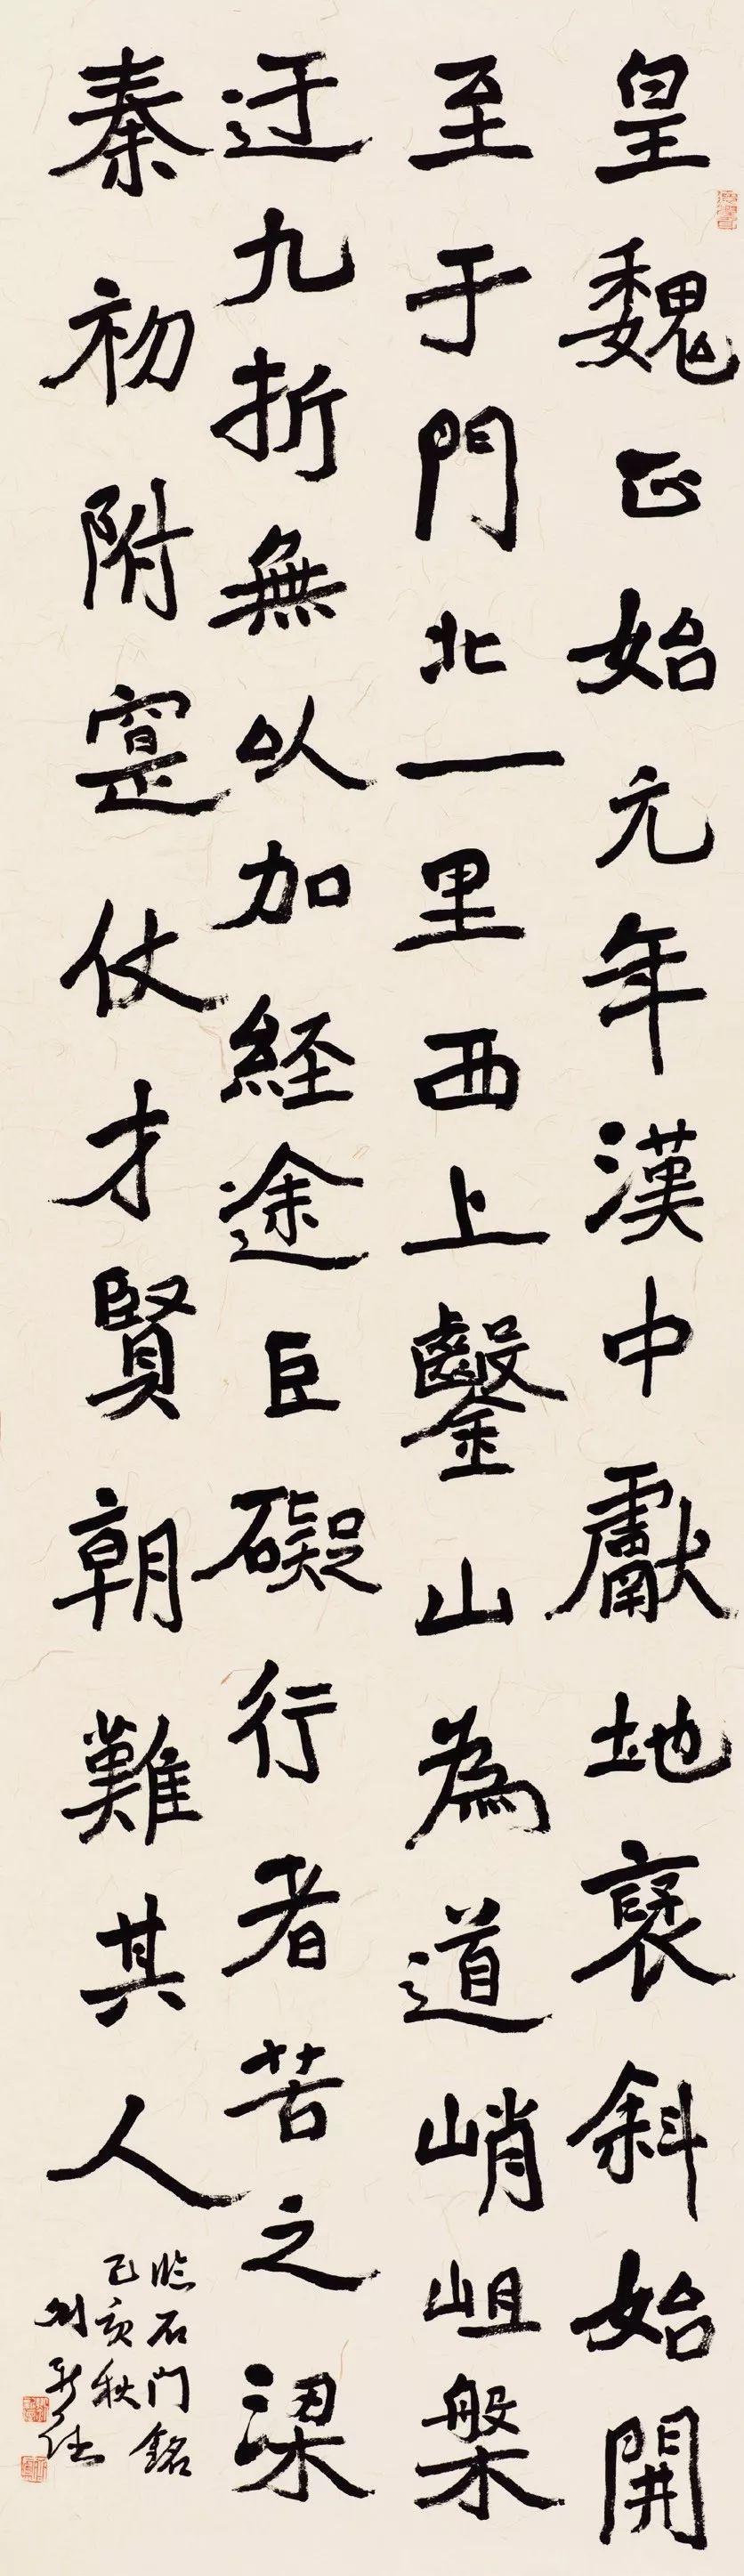 皇魏正始元年漢中獻地褒斜始開
至于門北一里西上鑿山為道峭岨槃
迂九折無以加経途巨礙行者苦之梁
秦初附寔仗才賢朝難其人
臨石門銘
己亥秋
劉